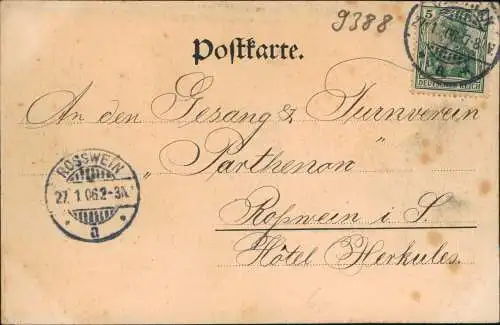 9388
5
DEUTSCHES REICH
Postkarte.
An den Gesang & Turnverein
"Parthenon"
ROSSWEIN
27. 1. 06. 2-3N.
a
Roßwein i S.
Hôtel Herkules.